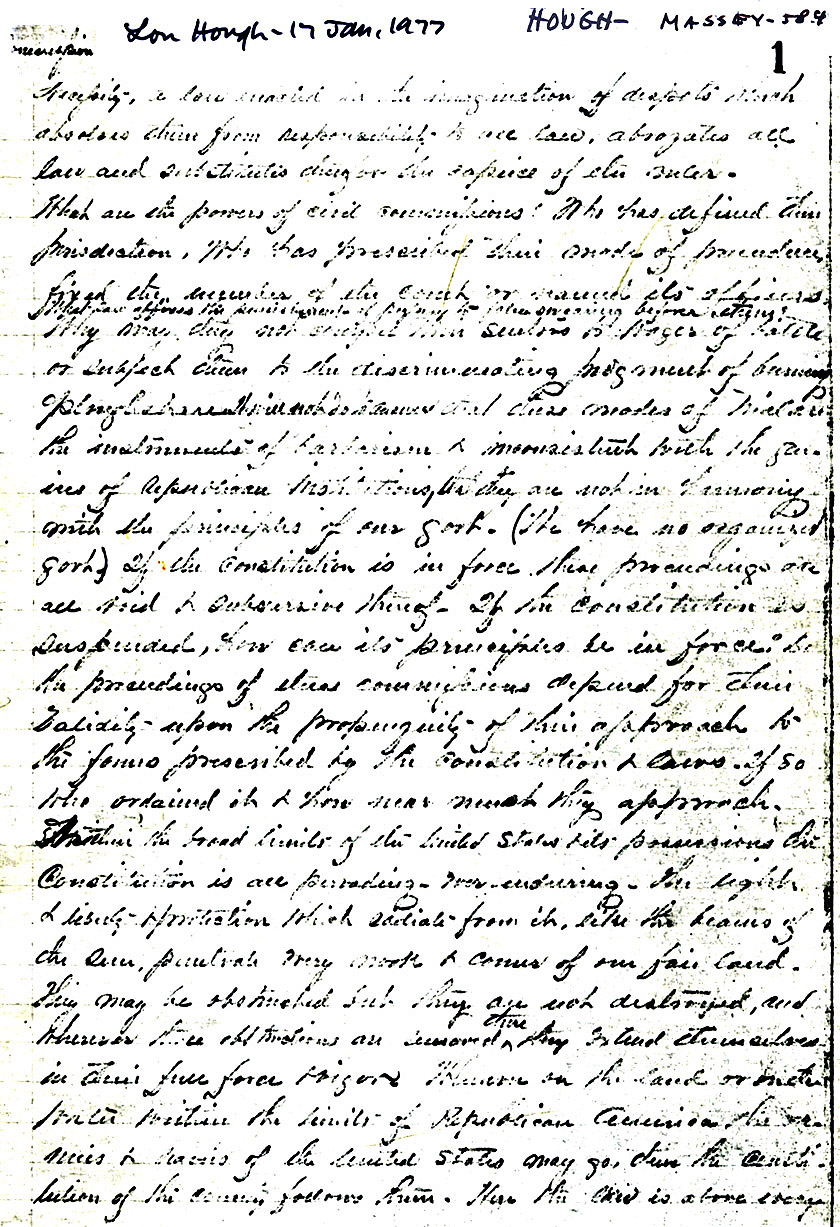 Lon Hough - 17 Jan, 1977
HOUGH - MASSEY - 584
1
Necessity, a law enacted in the imagination of despots which
absolves them from responsibility to all law, abrogates all
law and substitutes the caprice of the ruler.
What are the powers of civil commissions? Who has defined their
jurisdiction, Who has prescribed their mode of procedure,
fixed the number of the court or named its officers
What law affixes the punishment of perjury to false swearing before them?
Why may they not compel their suitors to wager of battle
or subject them to the discriminating judgment of burning
plough share that these modes of trial are
the instruments of barbarism & inconsistent with the gen-
ius of republican institutions, they are not in harmony
with the principles of our govt. (We have no organized
govt) If the Constitution is in force these proceedings are
all void & subversive thereof. If the constitution is
suspended, how can its principles be in force? Do
the proceedings of these commissions depend for their
validity upon the propinquity of their approach to
the forms prescribed by the constitution & laws. If so
who ordained it & how near must they approach.
Within the broad limits of the United States & its possessions the
Constitution is all pervading - ever-enduring. The light
& liberty & protection which radiate from it, like the beams of
the sun, penetrate every nook & corner of our fair land.
They may be obstructed but they are not destroyed, and
wherever these obstructions are removed, there they extend themselves
in their full force & vigor. Wherever on the land or on the
water within the limits of Republican America the ar-
mies & navies of the United States may go, then the Consti-
tution of the country follows them. Here the law is above every